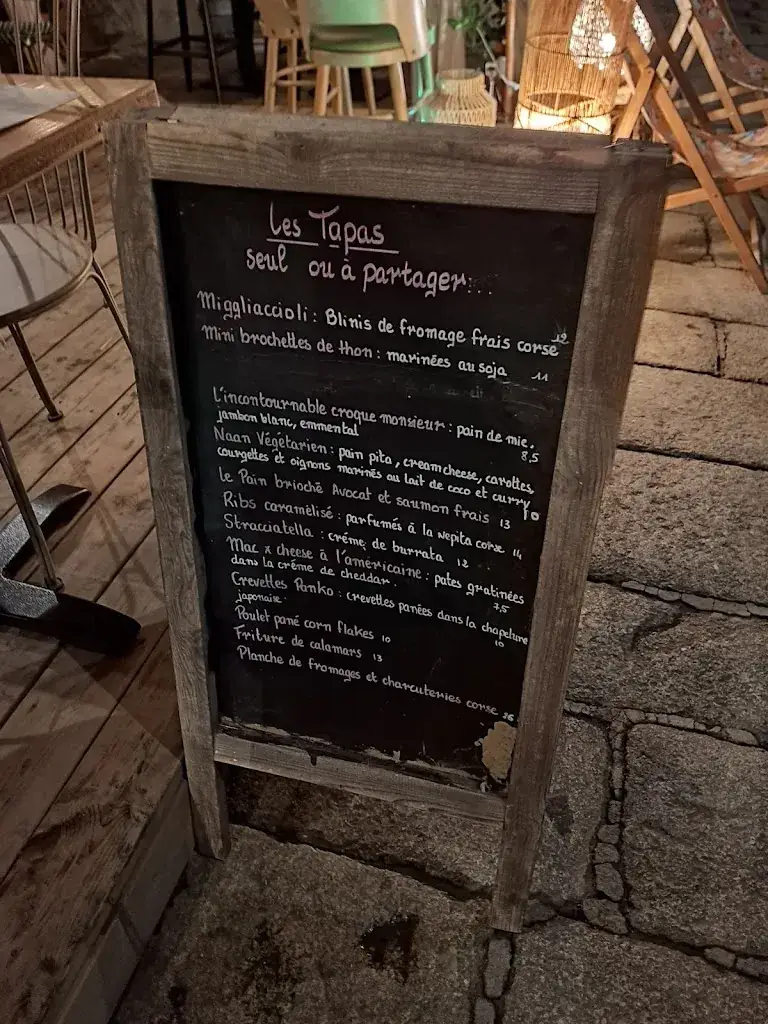 Les Tapas
seul ou à partager...
Miggliaccioli : Blinis de fromage frais corse 12
Mini brochettes de thon : marinées au soja 11
L'incontournable croque monsieur : pain de mie,
jambon blanc, emmental 8,5
Naan Végétarien : pain pita, creamcheese, carottes,
courgettes et oignons marinés au lait de coco et curry 10
Le Pain brioché Avocat et saumon frais 13
Ribs caramélisé : parfumés à la nepita corse 14
Stracciatella : crème de burrata 12
Mac x cheese à l'américaine : pates gratinées
dans la crème de cheddar. 7,5
Crevettes Panko : crevettes panées dans la chapelure
japonaise. 10
Poulet pané corn flakes 10
Friture de calamars 13
Planche de fromages et charcuteries corse 26